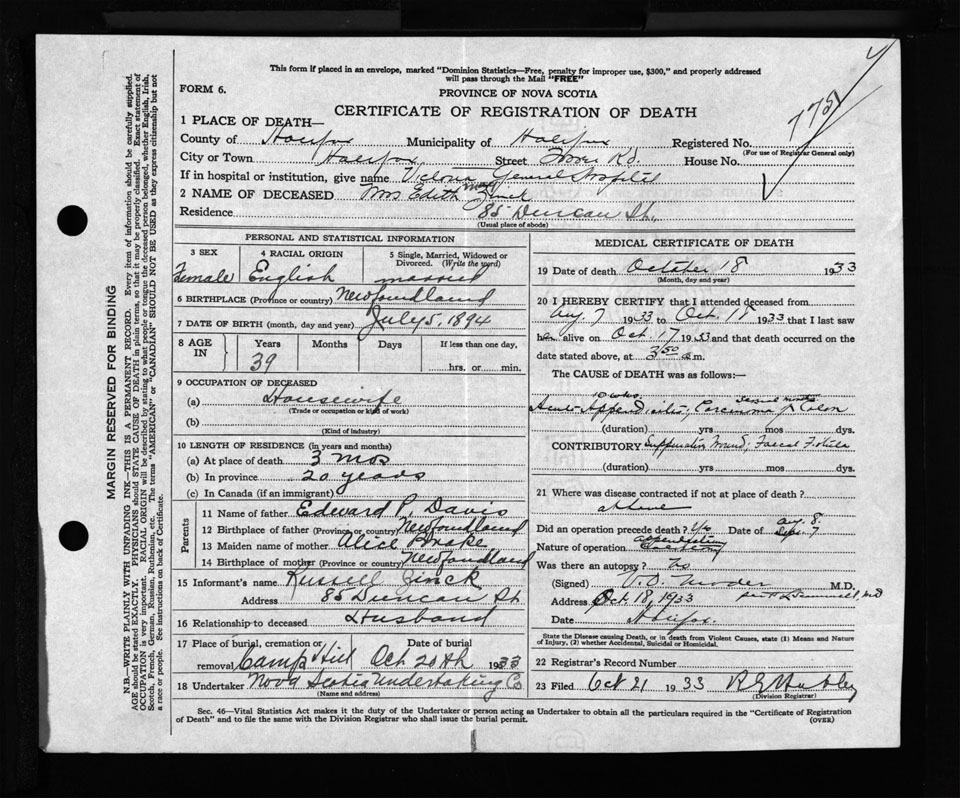 This form if placed in an envelope, marked "Dominion Statistics—Free, penalty for improper use, $300," and properly addressed
will pass through the Mail "FREE"
FORM 6.
PROVINCE OF NOVA SCOTIA
CERTIFICATE OF REGISTRATION OF DEATH
775
1 PLACE OF DEATH—
County of Halifax Municipality of Halifax Registered No.
(For use of Registrar General only)
City or Town Halifax, Street Tower Rd. House No.
If in hospital or institution, give name Victoria General Hospital
2 NAME OF DECEASED Mrs Edith Zinck
Residence 85 Duncan St.
(Usual place of abode)
PERSONAL AND STATISTICAL INFORMATION
3 SEX
4 RACIAL ORIGIN
5 Single, Married, Widowed or Divorced. (Write the word)
Female English married
6 BIRTHPLACE (Province or country) Newfoundland
7 DATE OF BIRTH (month, day and year) July 5, 1894
8 AGE IN Years Months Days If less than one day,
39 hrs. or min.
9 OCCUPATION OF DECEASED
(a) Housewife
(Trade or occupation or kind of work)
(b)
(Kind of industry)
10 LENGTH OF RESIDENCE (in years and months)
(a) At place of death 3 mos
(b) In province 20 years
(c) In Canada (if an immigrant)
Parents
11 Name of father Edward P. Davis
12 Birthplace of father (Province or country) Newfoundland
13 Maiden name of mother Alice Drake
14 Birthplace of mother (Province or country) Newfoundland
15 Informant's name Russell Zinck
Address 85 Duncan St
16 Relationship to deceased Husband
17 Place of burial, cremation or removal Camp Hill
Date of burial Oct 20th 1933
18 Undertaker Nova Scotia Undertaking Co
(Name and address)
MEDICAL CERTIFICATE OF DEATH
19 Date of death October 18 1933
(Month, day and year)
20 I HEREBY CERTIFY that I attended deceased from
Aug 7 1933 to Oct. 18 1933 that I last saw
her alive on Oct. 17 1933 and that death occurred on the
date stated above, at 3 50 a.m.
The CAUSE of DEATH was as follows:—
10 wks. Several months
Acute Appendicitis, Carcinoma of Colon
(duration) yrs mos dys.
CONTRIBUTORY Suppurating Wound, Faecal Fistula
(duration) yrs mos dys.
21 Where was disease contracted if not at place of death?
at home
Did an operation precede death? Yes Date of Aug. 8. Sept. 7
Nature of operation appendectomy
Was there an autopsy? no
(Signed) M.D.
Address Oct 18, 1933
Date Halifax.
State the Disease causing Death, or in death from Violent Causes, state (1) Means and
Nature of Injury, (2) whether Accidental, Suicidal or Homicidal.
22 Registrar's Record Number
23 Filed Oct 21 1933
(Division Registrar)
Sec. 46—Vital Statistics Act makes it the duty of the Undertaker or person acting as Undertaker to obtain all the particulars required in the "Certificate of Registration
of Death" and to file the same with the Division Registrar who shall issue the burial permit.
(OVER)
MARGIN RESERVED FOR BINDING
N.B.—WRITE PLAINLY WITH UNFADING INK—THIS IS A PERMANENT RECORD. Every item of information should be carefully supplied.
AGE should be stated EXACTLY. PHYSICIANS should STATE CAUSE OF DEATH in plain terms, so that it may be properly classified. Exact statement of
OCCUPATION is very important. RACIAL ORIGIN will be described by stating to what people or tongue the deceased person belonged, whether English, Irish,
Scotch, French, German, Russian, Ruthenian, etc. The terms "AMERICAN" or "CANADIAN" SHOULD NOT BE USED as they express citizenship but not
a race or people. See instructions on back of Certificate.